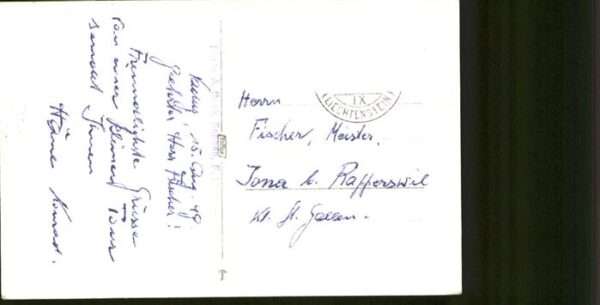 15. Aug. 49.
geehrter Herr Fischer!
Freundlichste Grüsse
von einer kleinen Tour
sendet Ihnen
Konrad.
IX
LIECHTENSTEIN
Herrn
Fischer, Meister,
Jona b. Rapperswil
Kt. St. Gallen.